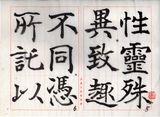 性靈殊
異致趣
不同憑
所託以